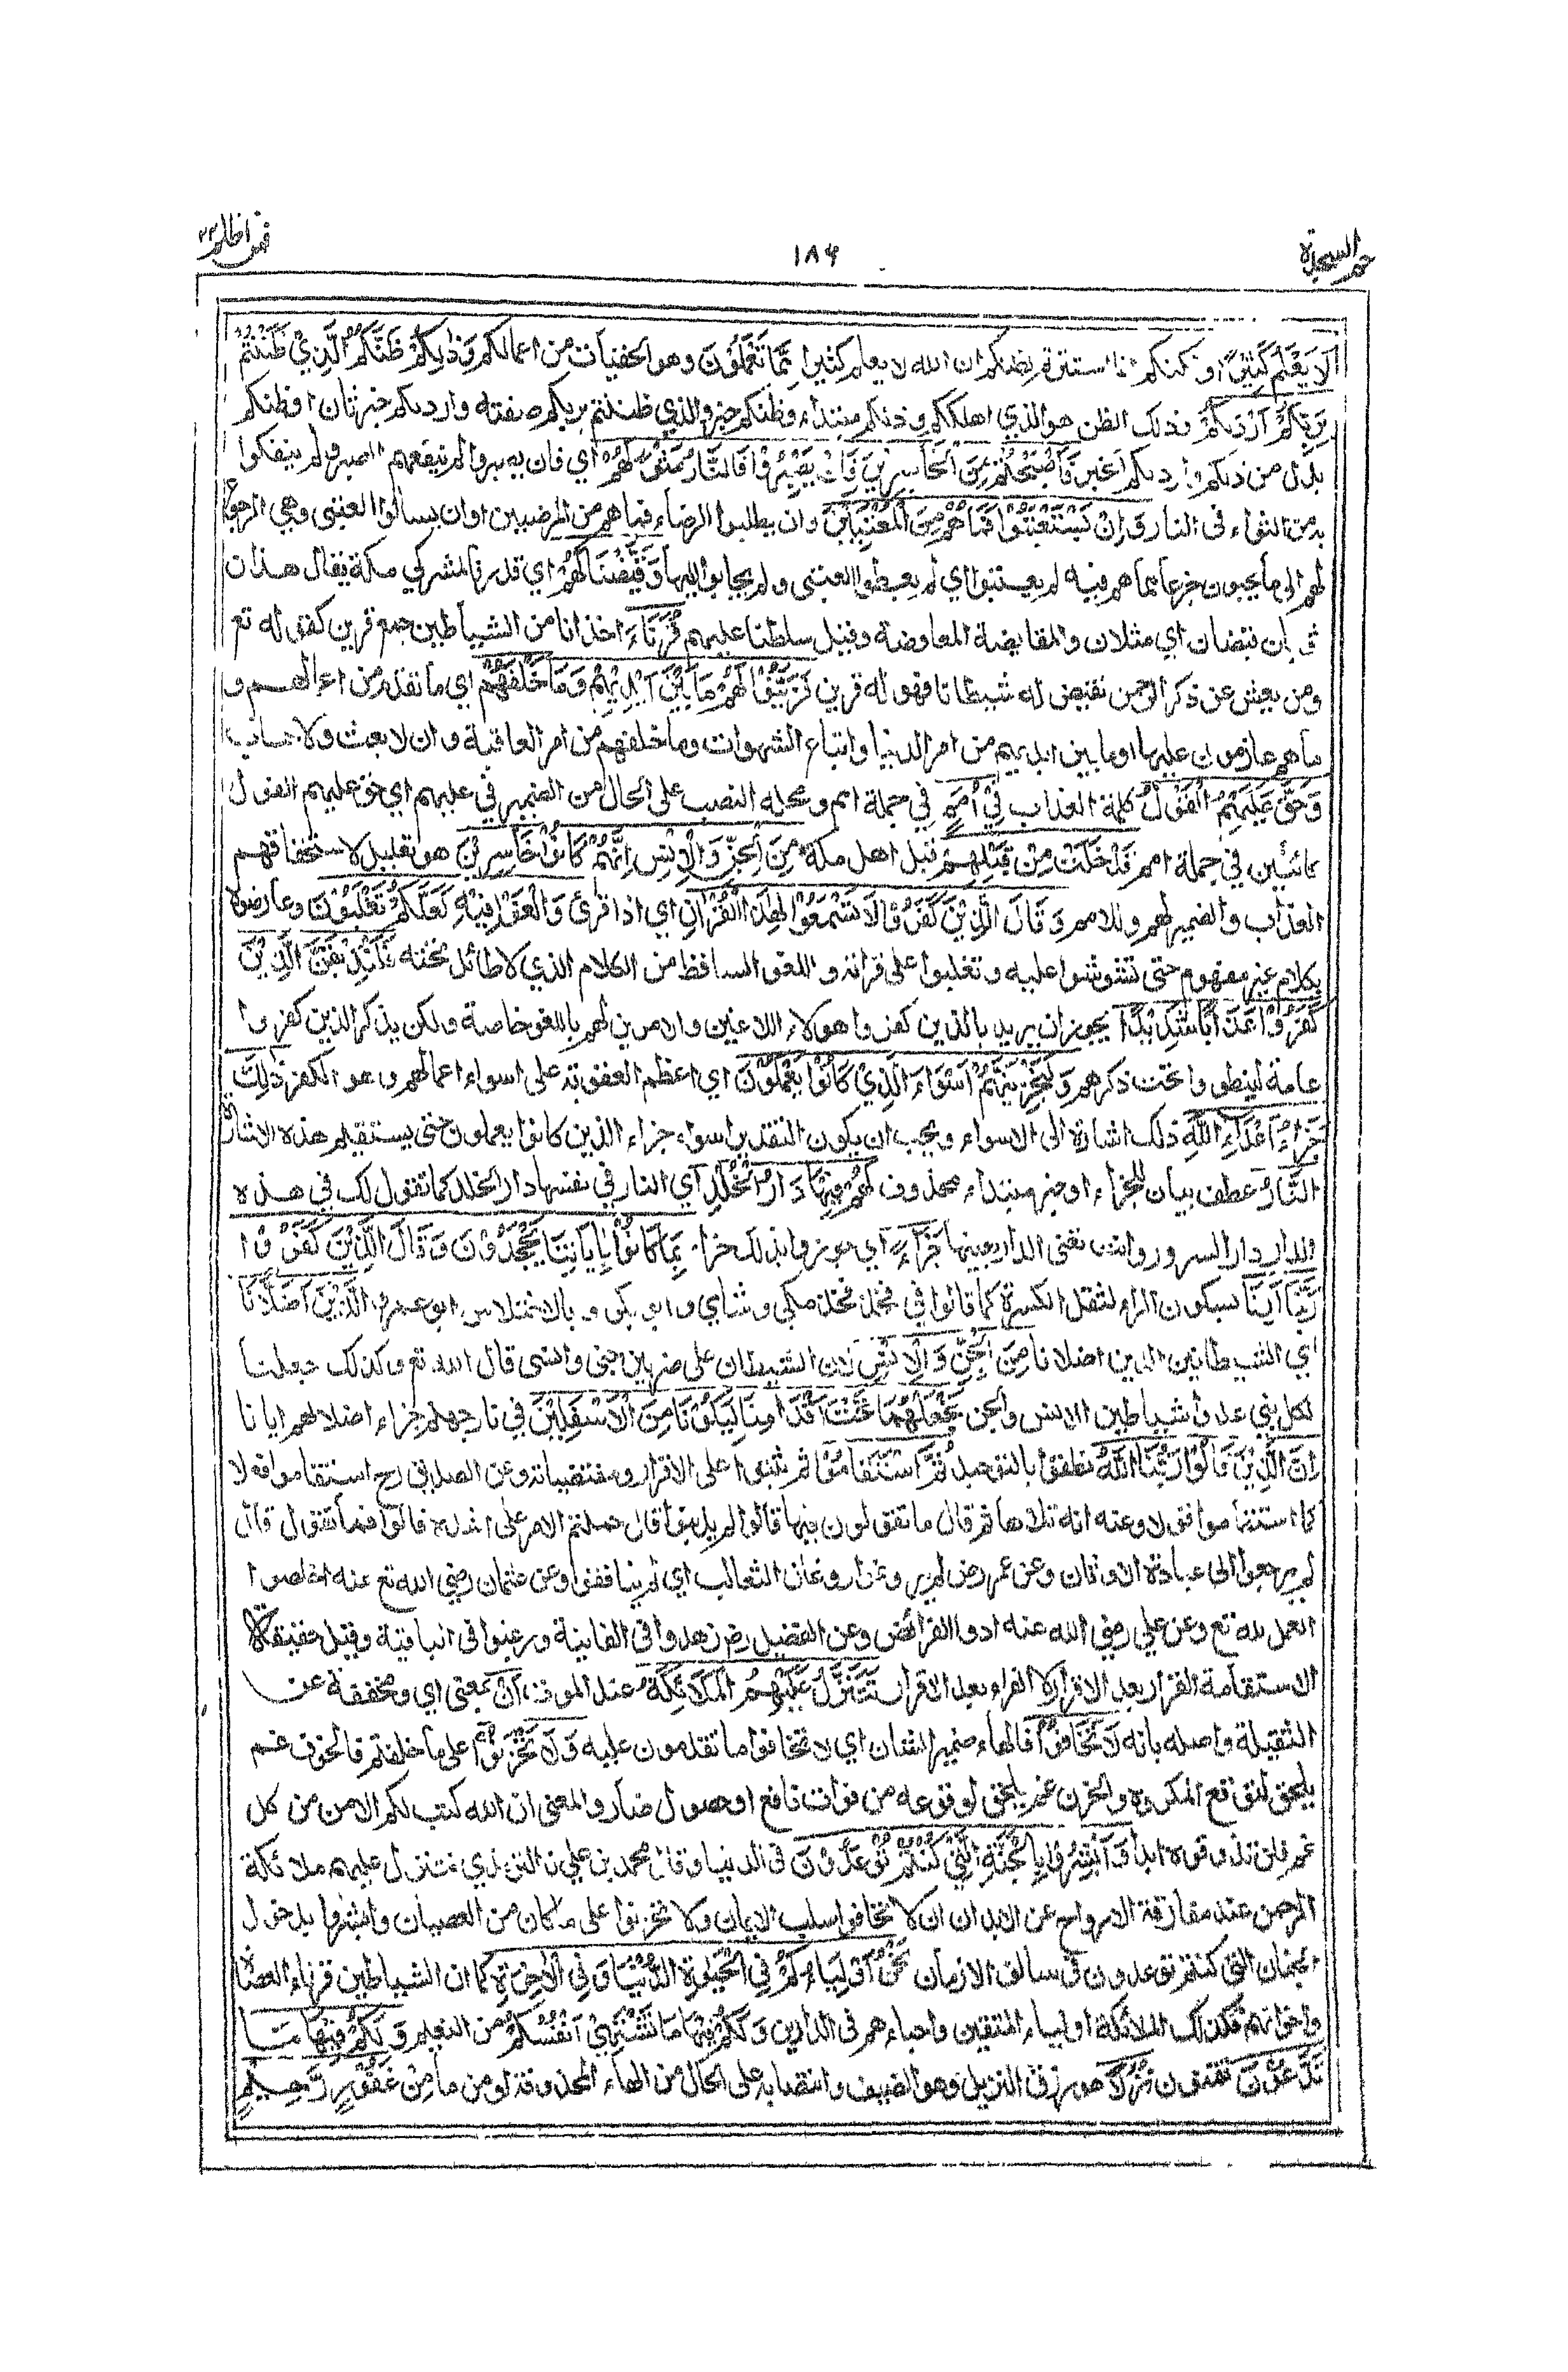 حم السجدة
١٨٦
فمن اظلم ٢٤
لَا يَعْلَمُ كَثِيْرًا ولكنكم انما استترتم لظنكم ان الله لا يعلم كثيرا مِّمَّا تَعْمَلُوْنَ وهو الخفيات من اعمالكم وَذٰلِكُمْ ظَنُّكُمُ الَّذِيْ ظَنَنْتُمْ
بِرَبِّكُمْ اَرْدٰىكُمْ وذلك الظن هو الذي اهلككم وذلكم مبتداء وظنكم خبر والذي ظننتم بربكم صفته وارديكم خبر ثان او ظنكم
بدل من ذلكم وارديكم الخبر فَاَصْبَحْتُمْ مِّنَ الْخَاسِرِيْنَ فَاِنْ يَّصْبِرُوْا فَالنَّارُ مَثْوًى لَّهُمْ اي فان يصبروا لم ينفعهم الصبر ولم ينفكوا
به من الثواء في النار وَاِنْ يَّسْتَعْتِبُوْا فَمَا هُمْ مِّنَ الْمُعْتَبِيْنَ وان يطلبوا الرضاء فما هم من المرضيين او ان يسالوا العتبى وهي الرجوع
لهم الى ما يحبون جزعا مما هم فيه لم يعتبوا اي لم يعطوا العتبى ولم يجابوا اليها وَقَيَّضْنَا لَهُمْ اي قدرنا لمشركي مكة يقال هذان
ثوبان قيضان اي مثلان والمقايضة المعاوضة وقيل سلطنا عليهم قُرَنَاءَ اخدانا من الشياطين جمع قرين كقوله تع
ومن يعش عن ذكر الرحمن نقيض له شيطانا فهو له قرين فَزَيَّنُوْا لَهُمْ مَّا بَيْنَ اَيْدِيْهِمْ وَمَا خَلْفَهُمْ اي ما تقدم من اعمالهم و
ما هم عازمون عليها او ما بين ايديهم من امر الدنيا واتباع الشهوات وما خلفهم من امر العاقبة وان لا بعث ولا حساب
وَحَقَّ عَلَيْهِمُ الْقَوْلُ كلمة العذاب فِيْ اُمَمٍ في جملة امم ومحله النصب على الحال من الضمير في عليهم اي حق عليهم القول
كائنين في جملة امم قَدْ خَلَتْ مِنْ قَبْلِهِمْ قبل اهل مكة مِّنَ الْجِنِّ وَالْاِنْسِ اِنَّهُمْ كَانُوْا خَاسِرِيْنَ هو تعليل لاستحقاقهم
العذاب والضمير لهم وللامم وَقَالَ الَّذِيْنَ كَفَرُوْا لَا تَسْمَعُوْا لِهٰذَا الْقُرْاٰنِ اي اذا قرئ وَالْغَوْا فِيْهِ لَعَلَّكُمْ تَغْلِبُوْنَ وعارضوه
بكلام غير مفهوم حتى تشوشوا عليه وتغلبوا على قراءته واللغو الساقط من الكلام الذي لا طائل تحته فَلَنُذِيْقَنَّ الَّذِيْنَ
كَفَرُوْا عَذَابًا شَدِيْدًا يجوز ان يريد بالذين كفروا هولاء اللاغين والامرين لهم باللغو خاصة ولكن يذكر الذين كفروا
عامة لينطووا تحت ذكرهم وَلَنَجْزِيَنَّهُمْ اَسْوَاَ الَّذِيْ كَانُوْا يَعْمَلُوْنَ اي اعظم العقوبة على اسواء اعمالهم وهو الكفر ذٰلِكَ
جَزَاءُ اَعْدَاءِ اللّٰهِ ذلك اشارة الى الاسواء ويجب ان يكون التقدير اسواء جزاء الذين كانوا يعملون حتى يستقيم هذه الاشارة
النَّارُ عطف بيان للجزاء او خبر مبتداء محذوف لَهُمْ فِيْهَا دَارُ الْخُلْدِ اي النار في نفسها دار الخلد كما تقول لك في هذه
الدار دار السرور وانت تعني الدار بعينها جَزَاءً اي جوزوا بذلك جزاء بِمَا كَانُوْا بِاٰيَاتِنَا يَجْحَدُوْنَ وَقَالَ الَّذِيْنَ كَفَرُوْا
رَبَّنَا اَرِنَا بسكون الراء لثقل الكسرة كما قالوا في فخذ فخذ مكي وشامي وابو بكر وبالاختلاس ابو عمرو الَّذَيْنِ اَضَلَّانَا
اي الشيطانين الذين اضلانا مِنَ الْجِنِّ وَالْاِنْسِ لان الشيطان على ضربين جني وانسي قال الله تع وكذلك جعلنا
لكل نبي عدوا شياطين الانس والجن نَجْعَلْهُمَا تَحْتَ اَقْدَامِنَا لِيَكُوْنَا مِنَ الْاَسْفَلِيْنَ في نار جهنم جزاء اضلالهم ايانا
اِنَّ الَّذِيْنَ قَالُوْا رَبُّنَا اللّٰهُ نطقوا بالتوحيد ثُمَّ اسْتَقَامُوْا ثم ثبتوا على الاقرار ومقتضياته وعن الصديق رح استقاموا قولا
كما استقاموا فعلا وعنه انه تلاها ثم قال ما تقولون فيها قالوا لم يذنبوا قال حملتم الامر على اشده قالوا فما تقول قال
لم يرجعوا الى عبادة الاوثان وعن عمر رض لم يروغوا روغان الثعالب اي لم ينافقوا وعن عثمان رضي الله تع عنه اخلصوا
العمل لله تع وعن علي رضي الله عنه ادوا الفرائض وعن الفضيل رض زهدوا في الفانية ورغبوا في الباقية وقيل حقيقة
الاستقامة القرار بعد الاقرار لا الفرار بعد الاقرار تَتَنَزَّلُ عَلَيْهِمُ الْمَلَائِكَةُ عند الموت اَنْ بمعنى اي ومخففة عن
الثقيلة واصله بانه لَا تَخَافُوْا فالهاء ضمير الشان اي لا تخافوا ما تقدمون عليه وَلَا تَحْزَنُوْا على ما خلفتم فالخوف غم
يلحق لتوقع المكروه والحزن غم يلحق لوقوعه من فوات نافع او حصول ضار والمعنى ان الله كتب لكم الامن من كل
غم فلن تذوقوه ابدا وَاَبْشِرُوْا بِالْجَنَّةِ الَّتِيْ كُنْتُمْ تُوْعَدُوْنَ في الدنيا وقال محمد بن علي الترمذي تتنزل عليهم ملائكة
الرحمن عند مفارقة الارواح عن الابدان ان لا تخافوا سلب الايمان ولا تحزنوا على ما كان من العصيان وابشروا بدخول
الجنان التي كنتم توعدون في سالف الازمان نَحْنُ اَوْلِيَاءُكُمْ فِي الْحَيٰوةِ الدُّنْيَا وَفِي الْاٰخِرَةِ كما ان الشياطين قرناء العصاة
واخوانهم فكذلك الملائكة اولياء المتقين واحباءهم في الدارين وَلَكُمْ فِيْهَا مَا تَشْتَهِيْ اَنْفُسُكُمْ من النعيم وَلَكُمْ فِيْهَا مَا
تَدَّعُوْنَ تتمنون نُزُلًا هو رزق النزيل وهو الضيف وانتصابه على الحال من الهاء المحذوفة او من ما مِّنْ غَفُوْرٍ رَّحِيْمٍ